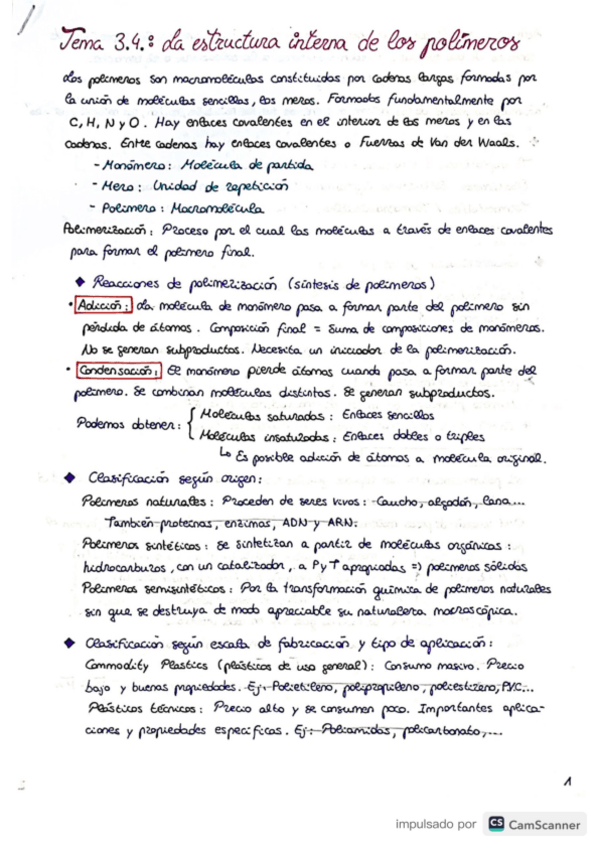 Tema 3.4.: La estructura interna de los polímeros
Los polímeros son macromoléculas constituidas por cadenas largas formadas por
la unión de moléculas sencillas, los meros. Formados fundamentalmente por
C, H, N y O. Hay enlaces covalentes en el interior de los meros y en las
cadenas. Entre cadenas hay enlaces covalentes o Fuerzas de Van der Waals.
- Monómero: Molécula de partida
- Mero: Unidad de repetición
- Polímero: Macromolécula
Polimerización: Proceso por el cual las moléculas a través de enlaces covalentes
para formar el polímero final.
◆ Reacciones de polimerización (síntesis de polímeros)
• Adición: La molécula de monómero pasa a formar parte del polímero sin
pérdida de átomos. Composición final = Suma de composiciones de monómeros.
No se generan subproductos. Necesita un iniciador de la polimerización.
• Condensación: El monómero pierde átomos cuando pasa a formar parte del
polímero. Se combinan moléculas distintas. Se generan subproductos.
Podemos obtener: { Moléculas saturadas: Enlaces sencillos
Moléculas insaturadas: Enlaces dobles o triples
↳ Es posible adición de átomos a molécula original.
◆ Clasificación según origen:
Polímeros naturales: Proceden de seres vivos: Caucho, algodón, lana...
También proteínas, enzimas, ADN y ARN.
Polímeros sintéticos: Se sintetizan a partir de moléculas orgánicas:
hidrocarburos, con un catalizador, a P y T apropiadas => polímeros sólidos
Polímeros semisintéticos: Por la transformación química de polímeros naturales
sin que se destruya de modo apreciable su naturaleza macroscópica.
◆ Clasificación según escala de fabricación y tipo de aplicación:
Commodity Plastics (plásticos de uso general): Consumo masivo. Precio
bajo y buenas propiedades. Ej: Polietileno, polipropileno, poliestireno, PVC...
Plásticos técnicos: Precio alto y se consumen poco. Importantes aplica-
ciones y propiedades específicas. Ej: Poliamidas, policarbonato,...
1
impulsado por CS CamScanner